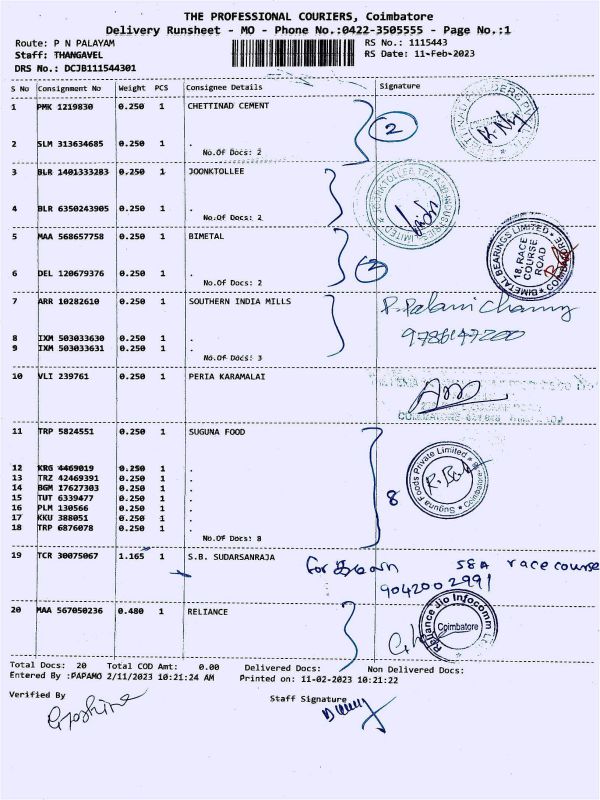 THE PROFESSIONAL COURIERS, Coimbatore
Delivery Runsheet - MO - Phone No.:0422-3505555 - Page No.:1
Route: P N PALAYAM
RS No.: 1115443
Staff: THANGAVEL
RS Date: 11-Feb-2023
DRS No.: DCJB111544301
S No Consignment No Weight PCS Consignee Details Signature
1 PMK 1219830 0.250 1 CHETTINAD CEMENT
2
2 SLM 313634685 0.250 1 .
No.Of Docs: 2
3 BLR 1401333283 0.250 1 JOONKTOLLEE
4 BLR 6350243905 0.250 1 .
No.Of Docs: 2
5 MAA 568657758 0.250 1 BIMETAL
BIMETAL BEARINGS LIMITED
18, RACE
COURSE
ROAD
6 DEL 120679376 0.250 1 .
No.Of Docs: 2
7 ARR 10282610 0.250 1 SOUTHERN INDIA MILLS
8 IXM 503033630 0.250 1 .
9 IXM 503033631 0.250 1 .
No.Of Docs: 3
10 VLI 239761 0.250 1 PERIA KARAMALAI
11 TRP 5824551 0.250 1 SUGUNA FOOD
Suguna Foods Private Limited
Coimbatore
12 KRG 4469019 0.250 1 .
13 TRZ 42469391 0.250 1 .
14 BGM 17627303 0.250 1 .
15 TUT 6339477 0.250 1 .
8
16 PLM 130566 0.250 1 .
17 KKU 388051 0.250 1 .
18 TRP 6876078 0.250 1 .
No.Of Docs: 8
19 TCR 30075067 1.165 1 S.B. SUDARSANRAJA
58A race course
9042002991
20 MAA 567050236 0.480 1 RELIANCE
Reliance Jio Infocomm
Coimbatore
Total Docs: 20 Total COD Amt: 0.00 Delivered Docs: Non Delivered Docs:
Entered By :PAPAMO 2/11/2023 10:21:24 AM Printed on: 11-02-2023 10:21:22
Verified By
Staff Signature